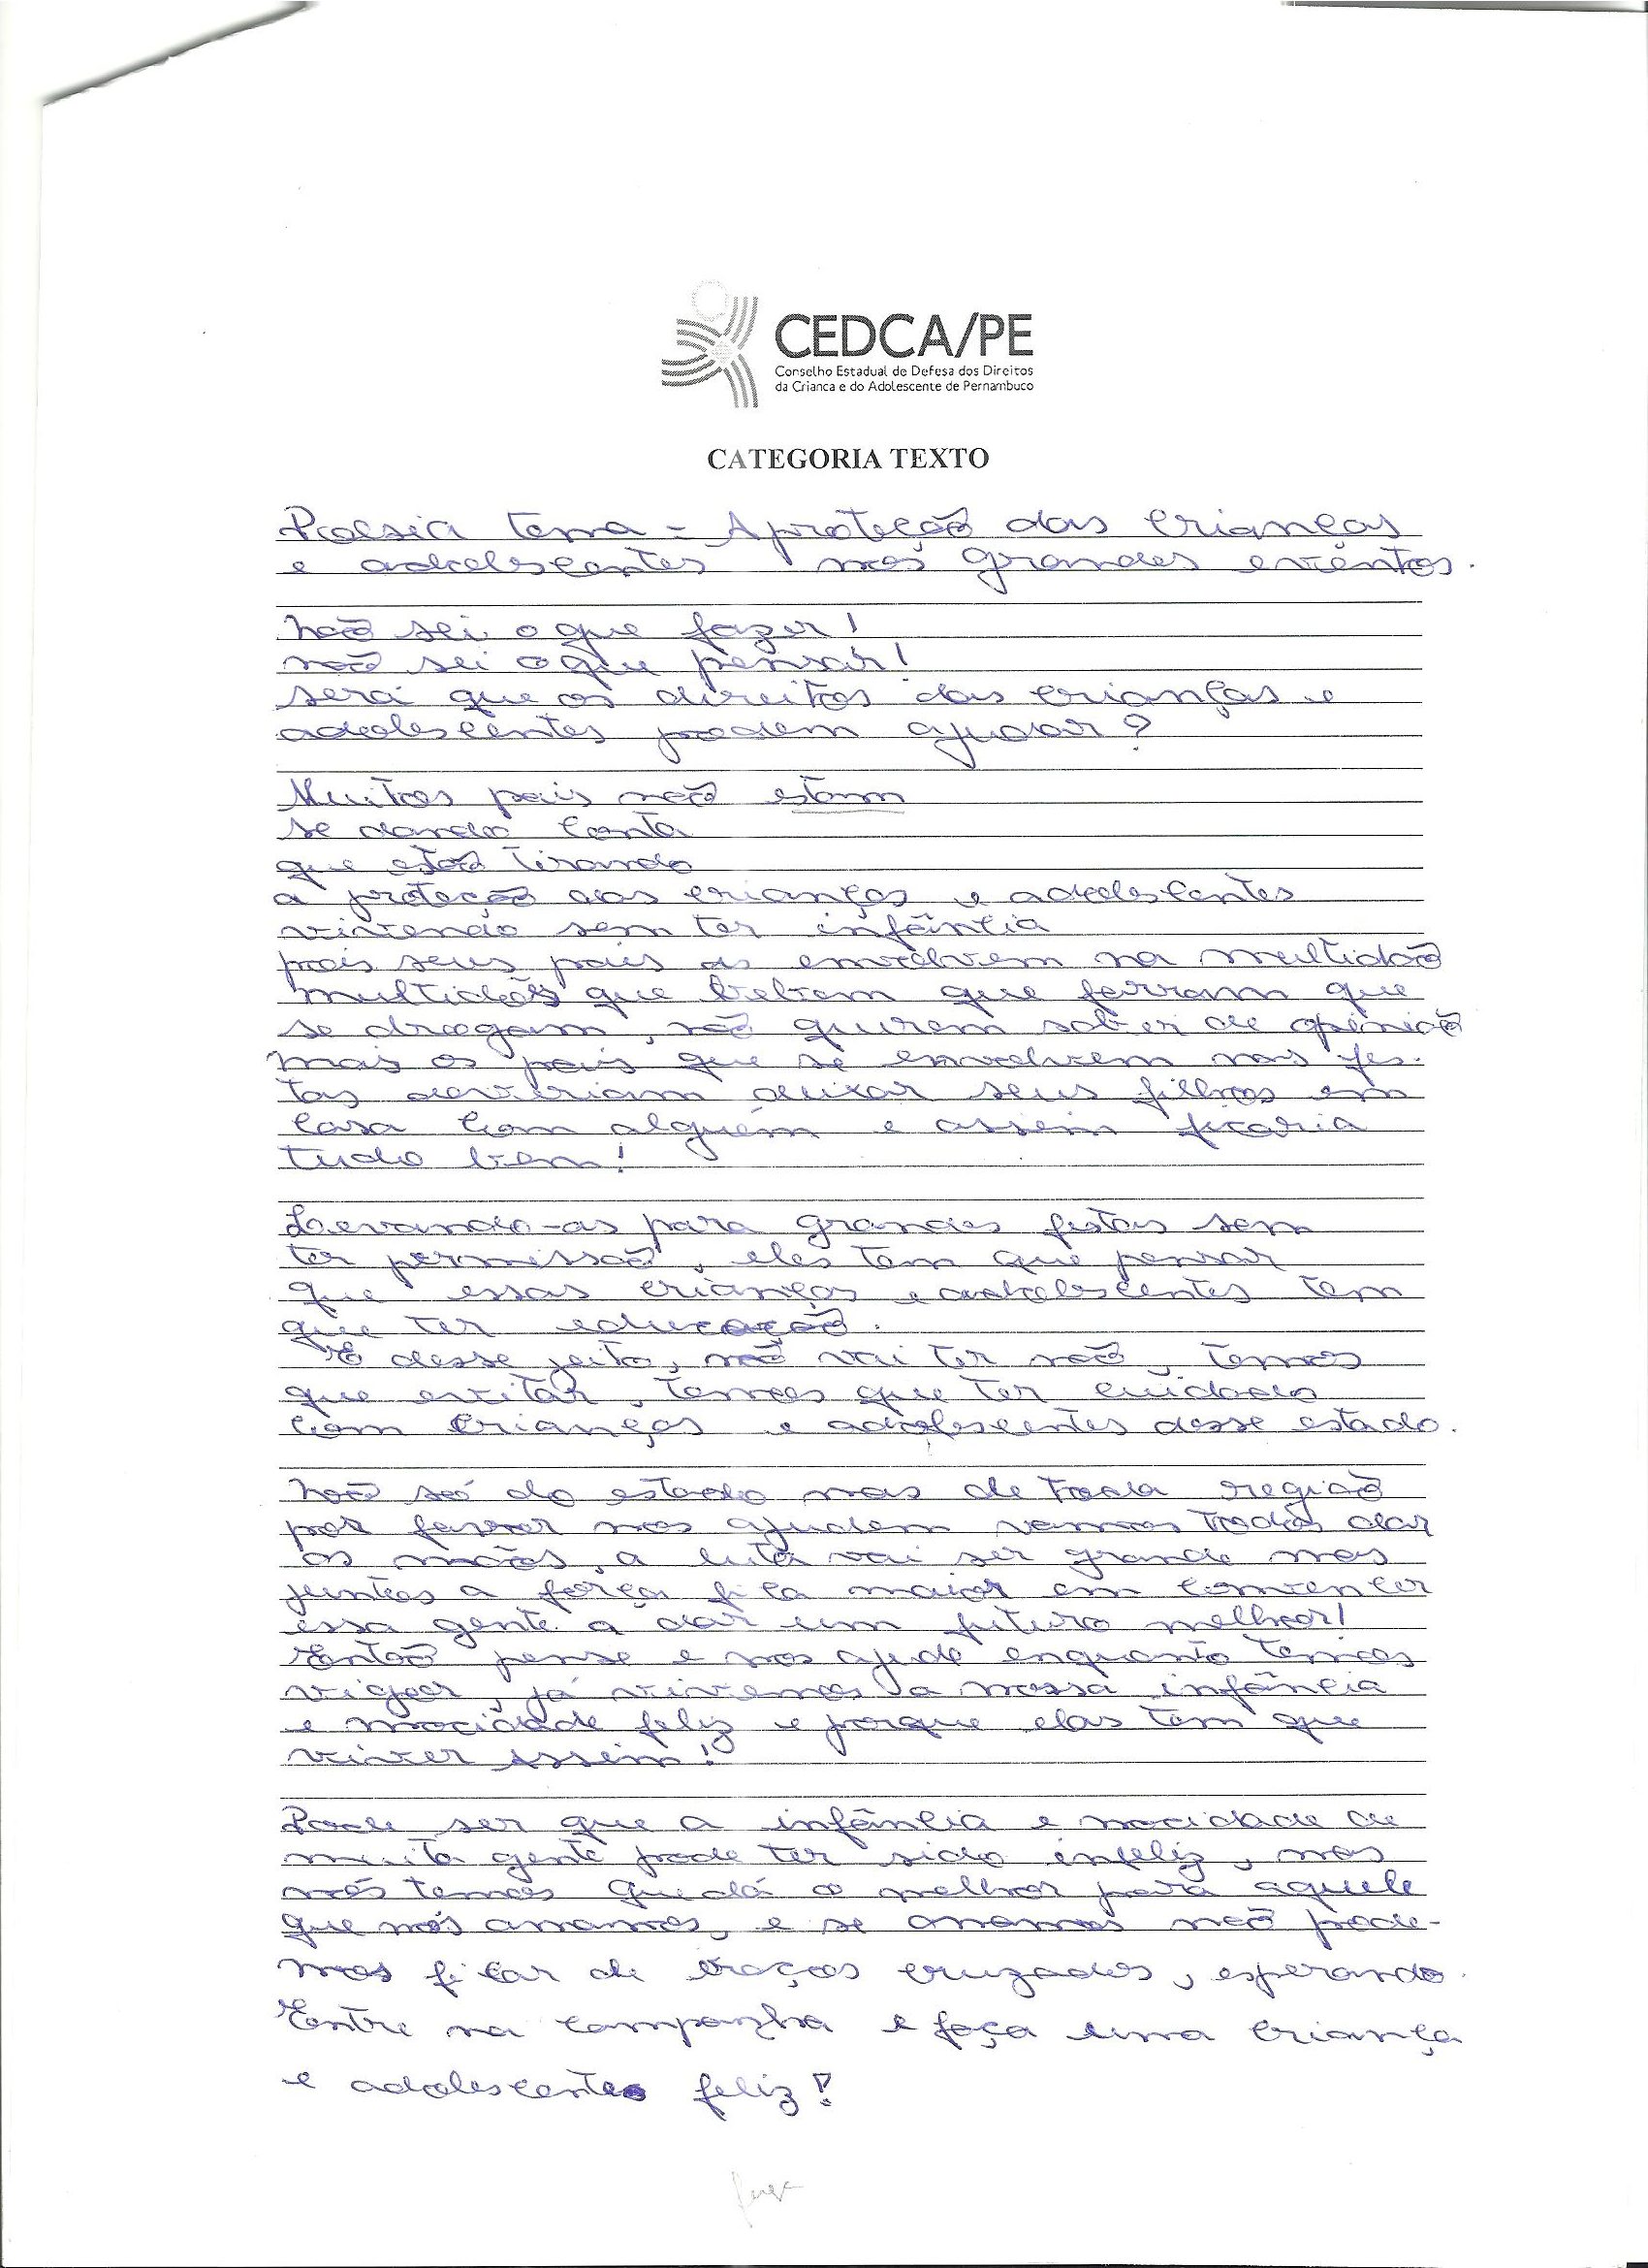 CEDCA/PE
Conselho Estadual de Defesa dos Direitos
da Crianca e do Adolescente de Pernambuco
CATEGORIA TEXTO
Poesia tema = A proteção das crianças
e adolescentes nos grandes evêntos.
Não sei o que fazer!
não sei o que pensar!
será que os direitos das crianças e
adolescentes podem ajudar?
Muitos pais não estam
se dando conta
que estão tirando
a proteção das crianças e adolescentes
vivendo sem ter infância
pois seus pais as envolvem na multidão
multidões que bebem que ferram que
se drogam, não querem saber de opinião
mais os pais que se envolvem nas fes-
tas deveriam deixar seus filhos em
casa com alguém e assim ficaria
tudo bem!
Levando-as para grandes festas sem
ter permissão, eles tem que pensar
que essas crianças e adolescentes tem
que ter educação.
E desse jeito, não vai ter não, temos
que evitar, temos que ter cuidado
com crianças e adolescentes desse estado.
Não só do estado mas de toda região
por favor nos ajudem vamos todos dar
as mãos, a luta vai ser grande mas
juntos a força fica maior em convencer
essa gente a dar um futuro melhor!
Então pense e nos ajude enquanto temos
vigor, já vivemos a nossa infância
e mocidade feliz e porque elas tem que
viver assim!
Pode ser que a infância e mocidade de
muita gente pode ter sido infeliz, mas
nós temos que dá o melhor para aquele
que nós amamos, e se amamos não pode-
mos ficar de braços cruzados, esperando.
Entre na campanha e faça uma criança
e adolescentes feliz!